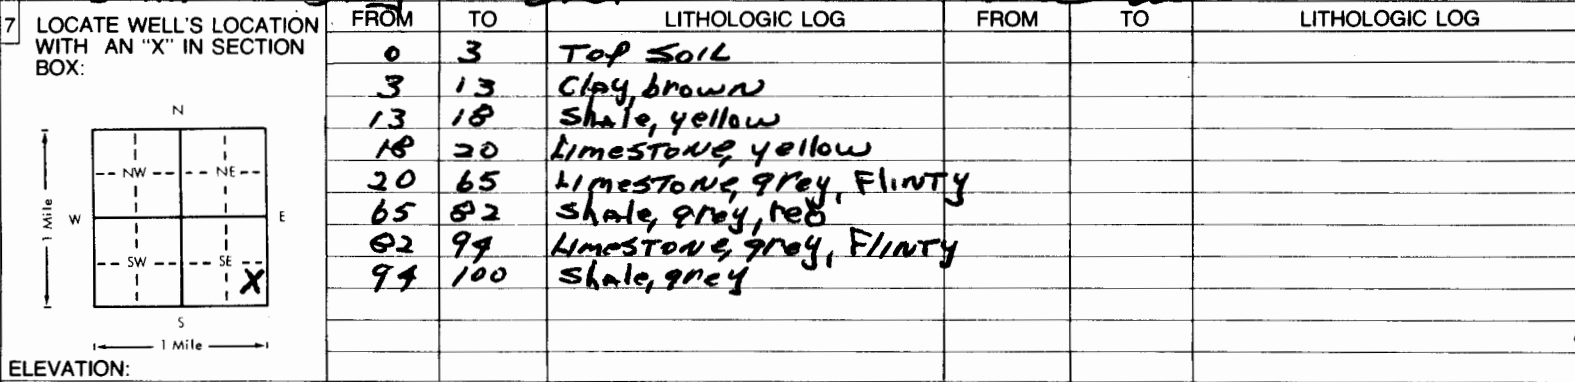 7 LOCATE WELL'S LOCATION WITH AN "X" IN SECTION BOX:
N
NW NE
W E
1 Mile
SW SE
X
S
1 Mile
ELEVATION:
FROM TO LITHOLOGIC LOG FROM TO LITHOLOGIC LOG
0 3 Top Soil
3 13 Clay, brown
13 18 Shale, yellow
18 20 Limestone, yellow
20 65 Limestone, grey, Flinty
65 82 Shale, grey, red
82 94 Limestone, grey, Flinty
94 100 Shale, grey